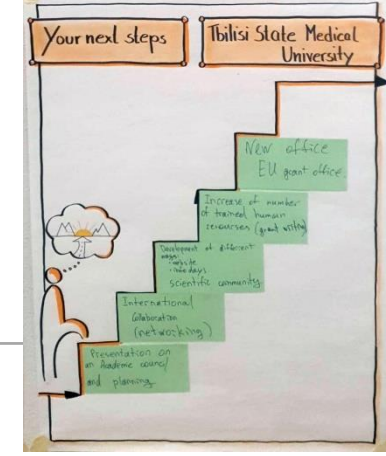 Your next steps
Tbilisi State Medical
University
New office
EU grant office
Increase of number
of trained human
resourses (grant writing)
Development of different
ways:
- website
- info days
scientific community
International
Collaboration
(networking)
Presentation on
an Academic council
and planning